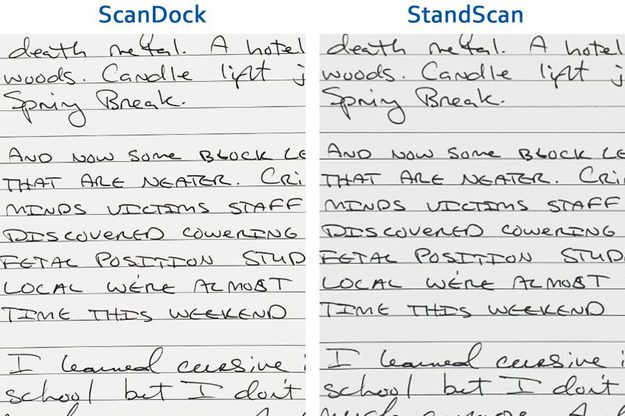 ScanDock
death metal. A hotel
woods. Candle lift j
Spring Break.
AND NOW SOME BLOCK LE
THAT ARE NEATER. CRI
MINDS VICTIMS STAFF
DISCOVERED COWERING
FETAL POSITION STUD
LOCAL WE'RE ALMOST
TIME THIS WEEKEND
I learned cursive i
school but I don't
StandScan
death metal. A hotel
woods. Candle lift j
Spring Break.
AND NOW SOME BLOCK LE
THAT ARE NEATER. CRI
MINDS VICTIMS STAFF
DISCOVERED COWERING
FETAL POSITION STUD
LOCAL WE'RE ALMOST
TIME THIS WEEKEND
I learned cursive i
school but I don't